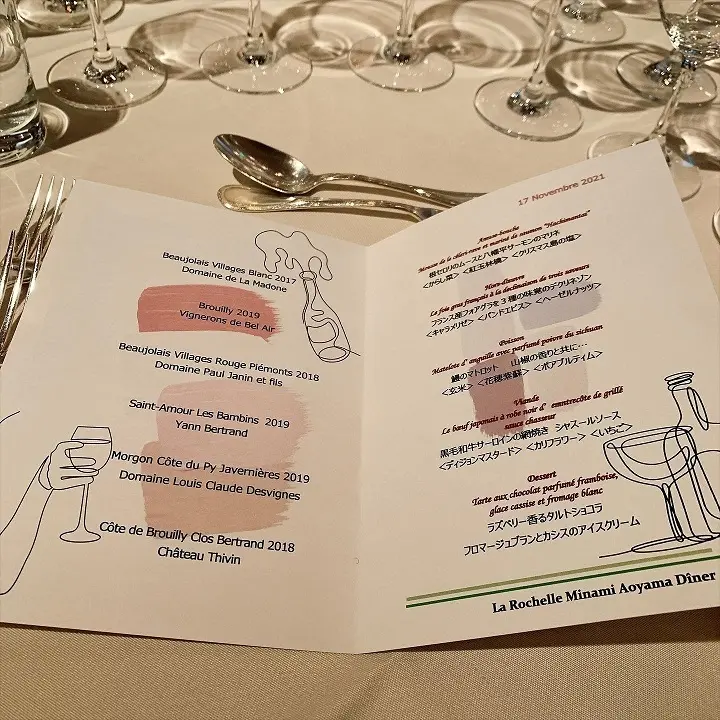 Beaujolais Villages Blanc 2017
Domaine de La Madone
Brouilly 2019
Vignerons de Bel Air
Beaujolais Villages Rouge Piémonts 2018
Domaine Paul Janin et fils
Saint-Amour Les Bambins 2019
Yann Bertrand
Morgon Côte du Py Javernières 2019
Domaine Louis Claude Desvignes
Côte de Brouilly Clos Bertrand 2018
Château Thivin
17 Novembre 2021
Amuse-bouche
Mousse de la céleri-rave et mariné de saumon "Hachimantai"
根セロリのムースと八幡平サーモンのマリネ
<からし菜> <紅玉林檎> <クリスマス島の塩>
Hors-d'œuvre
Le foie gras français à la declinaison de trois saveurs
フランス産フォアグラを3種の味覚のデクリネゾン
<キャラメリゼ> <パンドエピス> <ヘーゼルナッツ>
Poisson
Matelote d' anguille avec parfumé poivre du sichuan
鰻のマトロット 山椒の香りと共に…
<玄米> <花穂紫蘇> <ポアブルティム>
Viande
Le bœuf japonais à robe noir d' emntrecôte de grillé
sauce chasseur
黒毛和牛サーロインの網焼き シャスールソース
<ディジョンマスタード> <カリフラワー> <いちご>
Dessert
Tarte aux chocolat parfumé framboise,
glace cassise et fromage blanc
ラズベリー香るタルトショコラ
フロマージュブランとカシスのアイスクリーム
La Rochelle Minami Aoyama Dîner